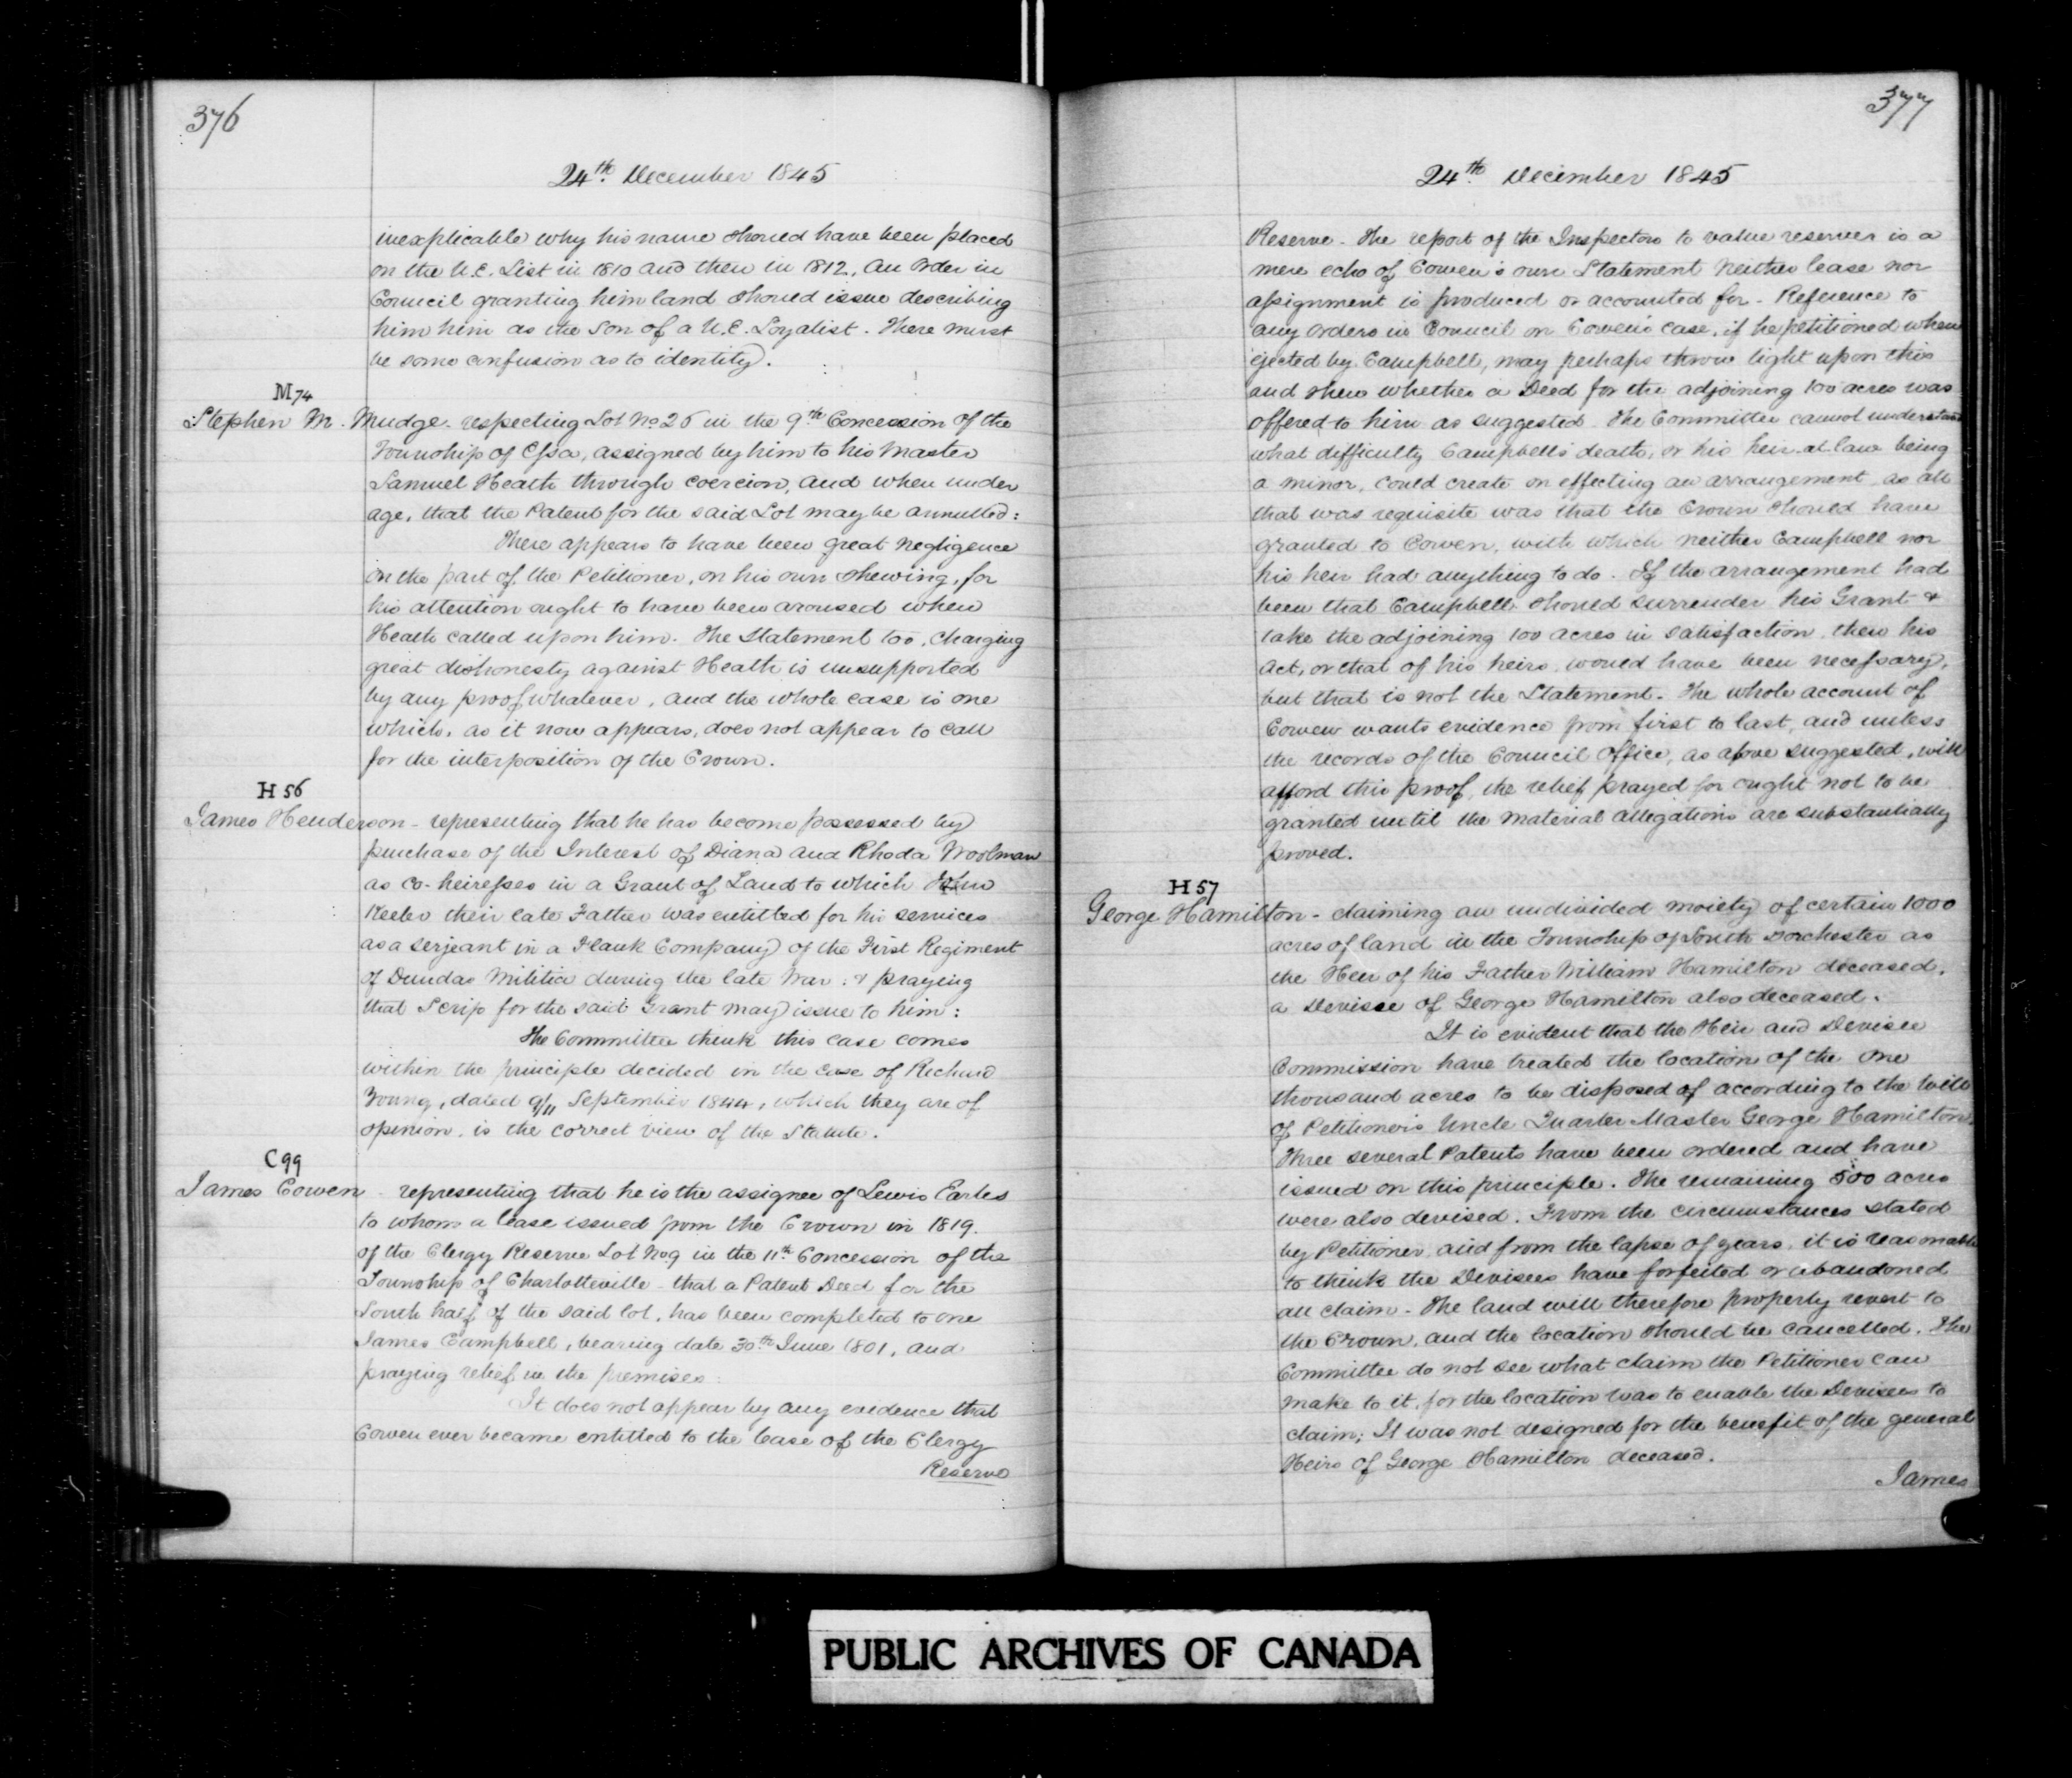 376
24th December 1845
inexplicable why his name should have been placed
on the U.E. List in 1810 and then in 1812, an Order in
Council granting him land should issue describing
him him as the son of a U.E. Loyalist. There must
be some confusion as to identity.
M 74
Stephen M. Mudge - respecting Lot No 26 in the 9th Concession of the
Township of Essa, assigned by him to his Master
Samuel Heath through coercion, and when under
age, that the Patent for the said Lot may be annulled:
There appears to have been great negligence
on the part of the Petitioner, on his own shewing, for
his attention ought to have been aroused when
Heath called upon him. The Statement too, charging
great dishonesty against Heath is unsupported
by any proof whatever, and the whole case is one
which, as it now appears, does not appear to call
for the interposition of the Crown.
H 56
James Henderson - representing that he has become possessed by
purchase of the Interest of Diana and Rhoda Woolman
as co-heiresses in a Grant of Land to which John
Keeler their late Father was entitled for his services
as a serjeant in a Flank Company of the First Regiment
of Dundas Militia during the late War: & praying
that Scrip for the said Grant may issue to him:
The Committee think this case comes
within the principle decided in the case of Richard
Young, dated 9/11 September 1844, which they are of
opinion, is the correct view of the Statute.
C 99
James Cowen - representing that he is the assignee of Lewis Earles
to whom a lease issued from the Crown in 1819.
of the Clergy Reserve Lot No 9 in the 11th Concession of the
Township of Charlotteville - that a Patent Deed for the
South half of the said lot, has been completed to one
James Campbell, bearing date 30th June 1801, and
praying relief in the premises:
It does not appear by any evidence that
Cowen ever became entitled to the lease of the Clergy
Reserve
377
24th December 1845
Reserve - The report of the Inspectors to value reserves is a
mere echo of Cowen's own Statement Neither lease nor
assignment is produced or accounted for - Reference to
any orders in Council on Cowen's case, if he petitioned when
ejected by Campbell, may perhaps throw light upon this
and shew whether a Deed for the adjoining 100 acres was
offered to him as suggested The Committee cannot understand
what difficulty Campbell's death, or his heir at law being
a minor, could create on effecting an arrangement as all
that was requisite was that the Crown should have
granted to Cowen, with which neither Campbell nor
his heir had anything to do. If the arrangement had
been that Campbell should surrender his Grant &
take the adjoining 100 acres in satisfaction, then his
act, or that of his heirs would have been necessary,
but that is not the Statement. The whole account of
Cowen wants evidence from first to last, and unless
the records of the Council Office, as above suggested, will
afford this proof, the relief prayed for ought not to be
granted until the material allegations are substantially
proved.
H 57
George Hamilton - claiming an undivided moiety of certain 1000
acres of land in the Township of South Dorchester as
the Heir of his Father William Hamilton deceased,
a Devisee of George Hamilton also deceased.
It is evident that the Heir and Devisee
Commission have treated the location of the one
thousand acres to be disposed of according to the will
of Petitioner's Uncle Quarter Master George Hamilton.
Three several Patents have been ordered and have
issued on this principle. The remaining 500 acres
were also devised. From the circumstances stated
by Petitioner, and from the lapse of years, it is reasonable
to think the Devisees have forfeited or abandoned
all claim - The land will therefore properly revert to
the Crown, and the location should be cancelled. The
Committee do not see what claim the Petitioner can
make to it, for the location was to enable the Devisees to
claim; It was not designed for the benefit of the general
Heirs of George Hamilton deceased.
James
PUBLIC ARCHIVES OF CANADA